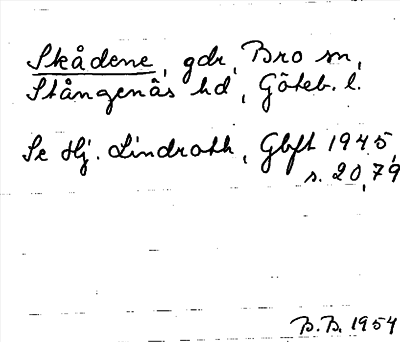 Skådene, gdr, Bro sn,
Stångenäs hd, Göteb. l.
Se Hj. Lindroth, Gbft 1945,
s. 20, 79
B.B. 1954